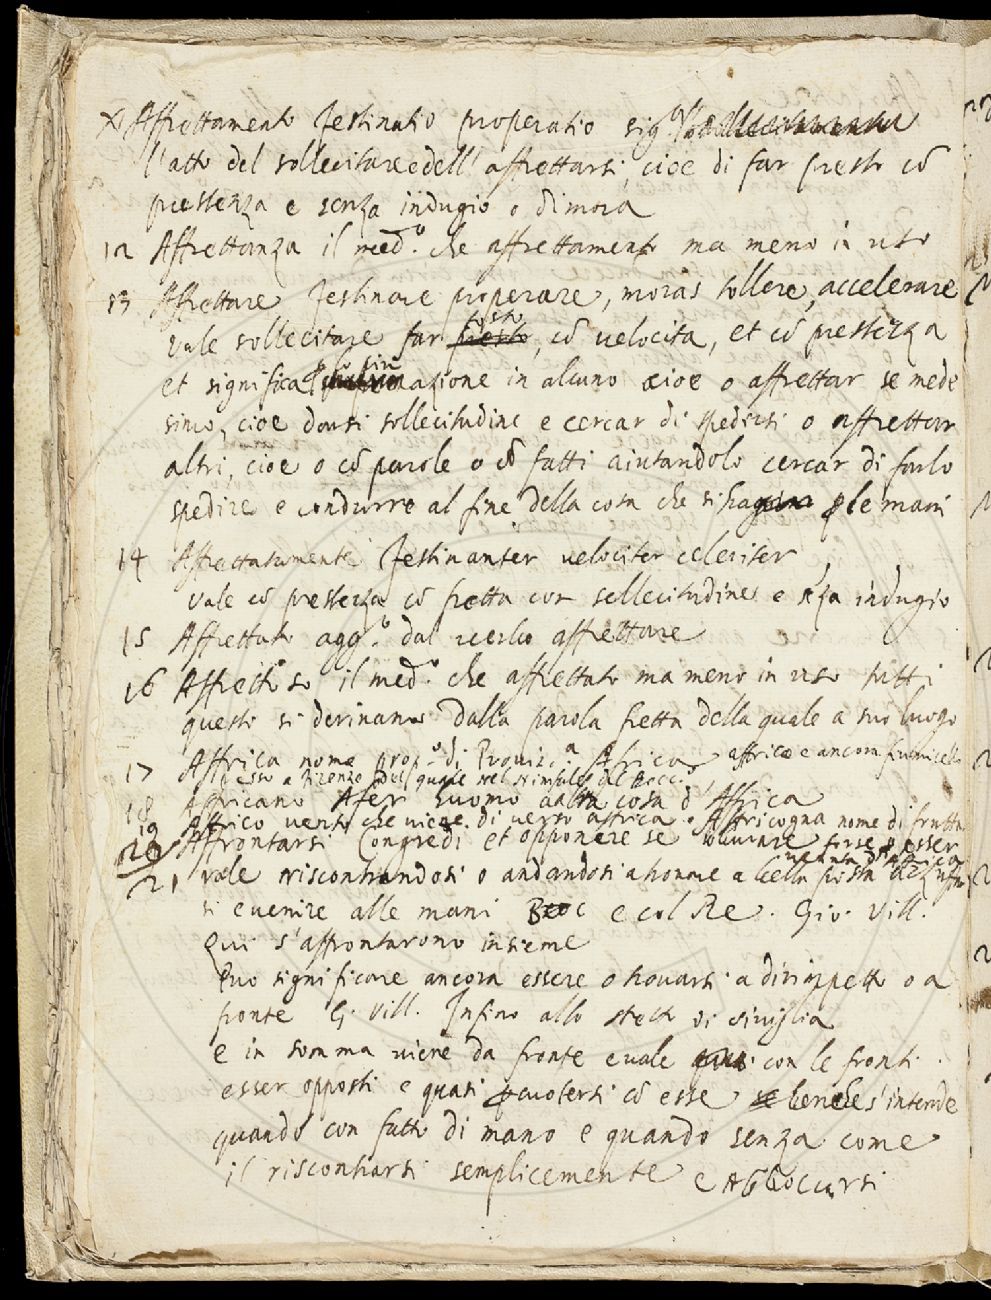 Affrettamento festinatio properatio sig.
l'atto del sollecitare e dell'affrettarsi, cioe di far presto cō
prestezza e senza indugio o dimora
12 Affrettanza il med.o che affrettamento ma meno in uso
13 Affrettare festinare properare, moras tollere, accelerare
vale sollecitare far tosto, cō velocita, et cō prestezza
et significa azione in alcuno cioe o affrettar se mede
simo, cioe darsi sollecitudine e cercar di spedirsi o affrettar
altri, cioe o cō parole o cō fatti aiutandolo cercar di farlo
spedire e condurre al fine della cosa che si ha le mani
14 Affrettatamente festinanter velociter celeriter
vale cō prestezza cō fretta con sollecitudine e sēza indugio
15 Affrettato agg.o dal verbo affrettare
16 Affrettoso il med.o che affrettato ma meno in uso tutti
questo si derivano dalla parola fretta della quale a suo luogo
17 Affrica nome prop.o di Provinc.a Africa affrico e ancora fiumicello
presso a Firenze del quale nel Ninfale del Bocc.o
18 Affricano Afer huomo cosa d'Affrica
19 Affrico vento che viene di verso affrica. Affricogna nome di frutta
20 Affrontarsi Congredi et opponere se forse esser
venuta d'Affrica
21 vale riscontrandosi o andandosi a
si e venire alle mani e col Re. Gio. Vill.
Qui s'affrontarono insieme
Puo significare ancora essere o trovarsi a dirimpetto o a
fronte G. Vill. Infino allo stretto di sibilia
e in somma viene da fronte e vale con le fronti
esser opposti e quasi percuotersi cō esse benche s'intende
quando con fatto di mano e quando senza come
il riscontrarsi semplicemente e Abboccarsi